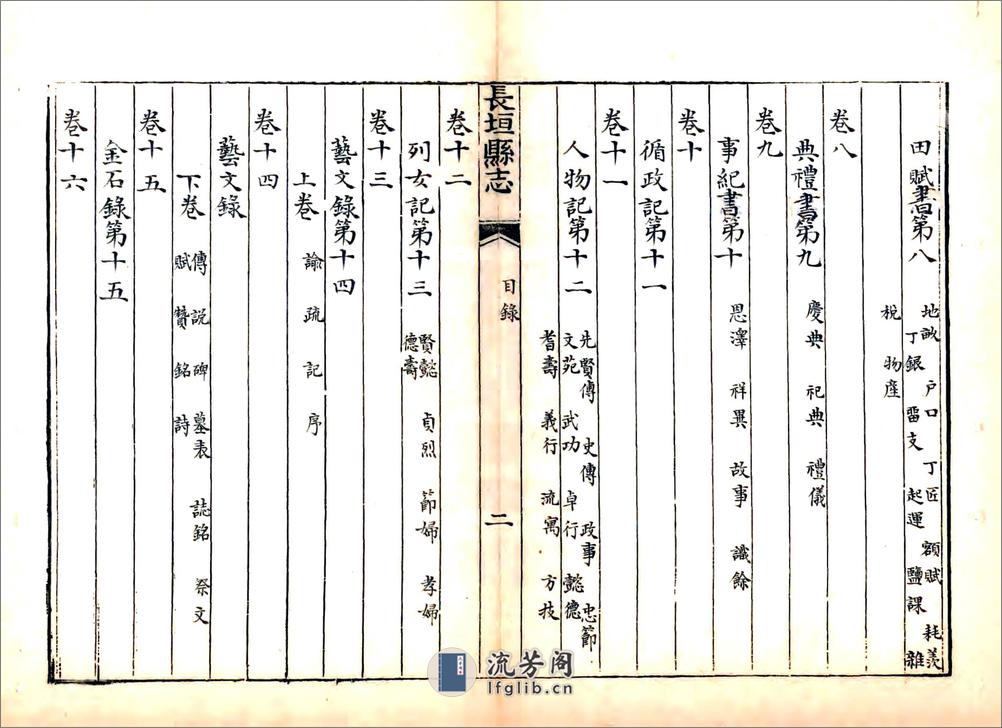 田賦書第八
地畝 戶口 丁匠 額賦 耗羨
丁銀 留支 起運 鹽課 雜
稅 物產
卷八
典禮書第九 慶典 祀典 禮儀
卷九
事紀書第十 恩澤 祥異 故事 識餘
卷十
循政記第十一
卷十一
人物記第十二
先賢傳 史傳 政事 忠節
文苑 武功 卓行 懿德
耆壽 義行 流寓 方技
長垣縣志
目錄
二
卷十二
列女記第十三
賢懿 貞烈 節婦 孝婦
德壽
卷十三
藝文錄第十四
上卷 諭 疏 記 序
卷十四
藝文錄
下卷
傳 說 碑 墓表 誌銘 祭文
賦 贊 銘 詩
卷十五
金石錄第十五
卷十六
流芳阁
lfglib.cn